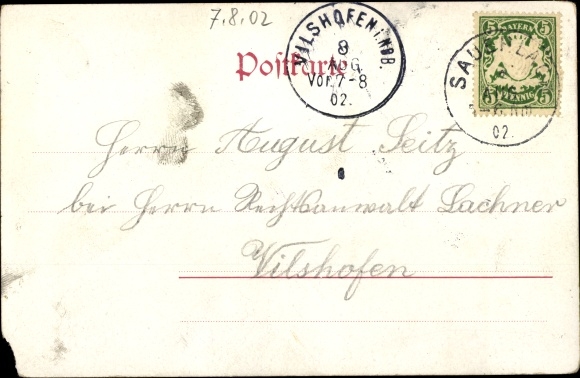 7.8.02
VILSHOFEN I. NDB.
8
AUG
VOR 7-8
02.
Postkarte
5 BAYERN 5
5 PFENNIG 5
02.
Herrn August Seitz
bei Herrn Rechtsanwalt Lachner
Vilshofen